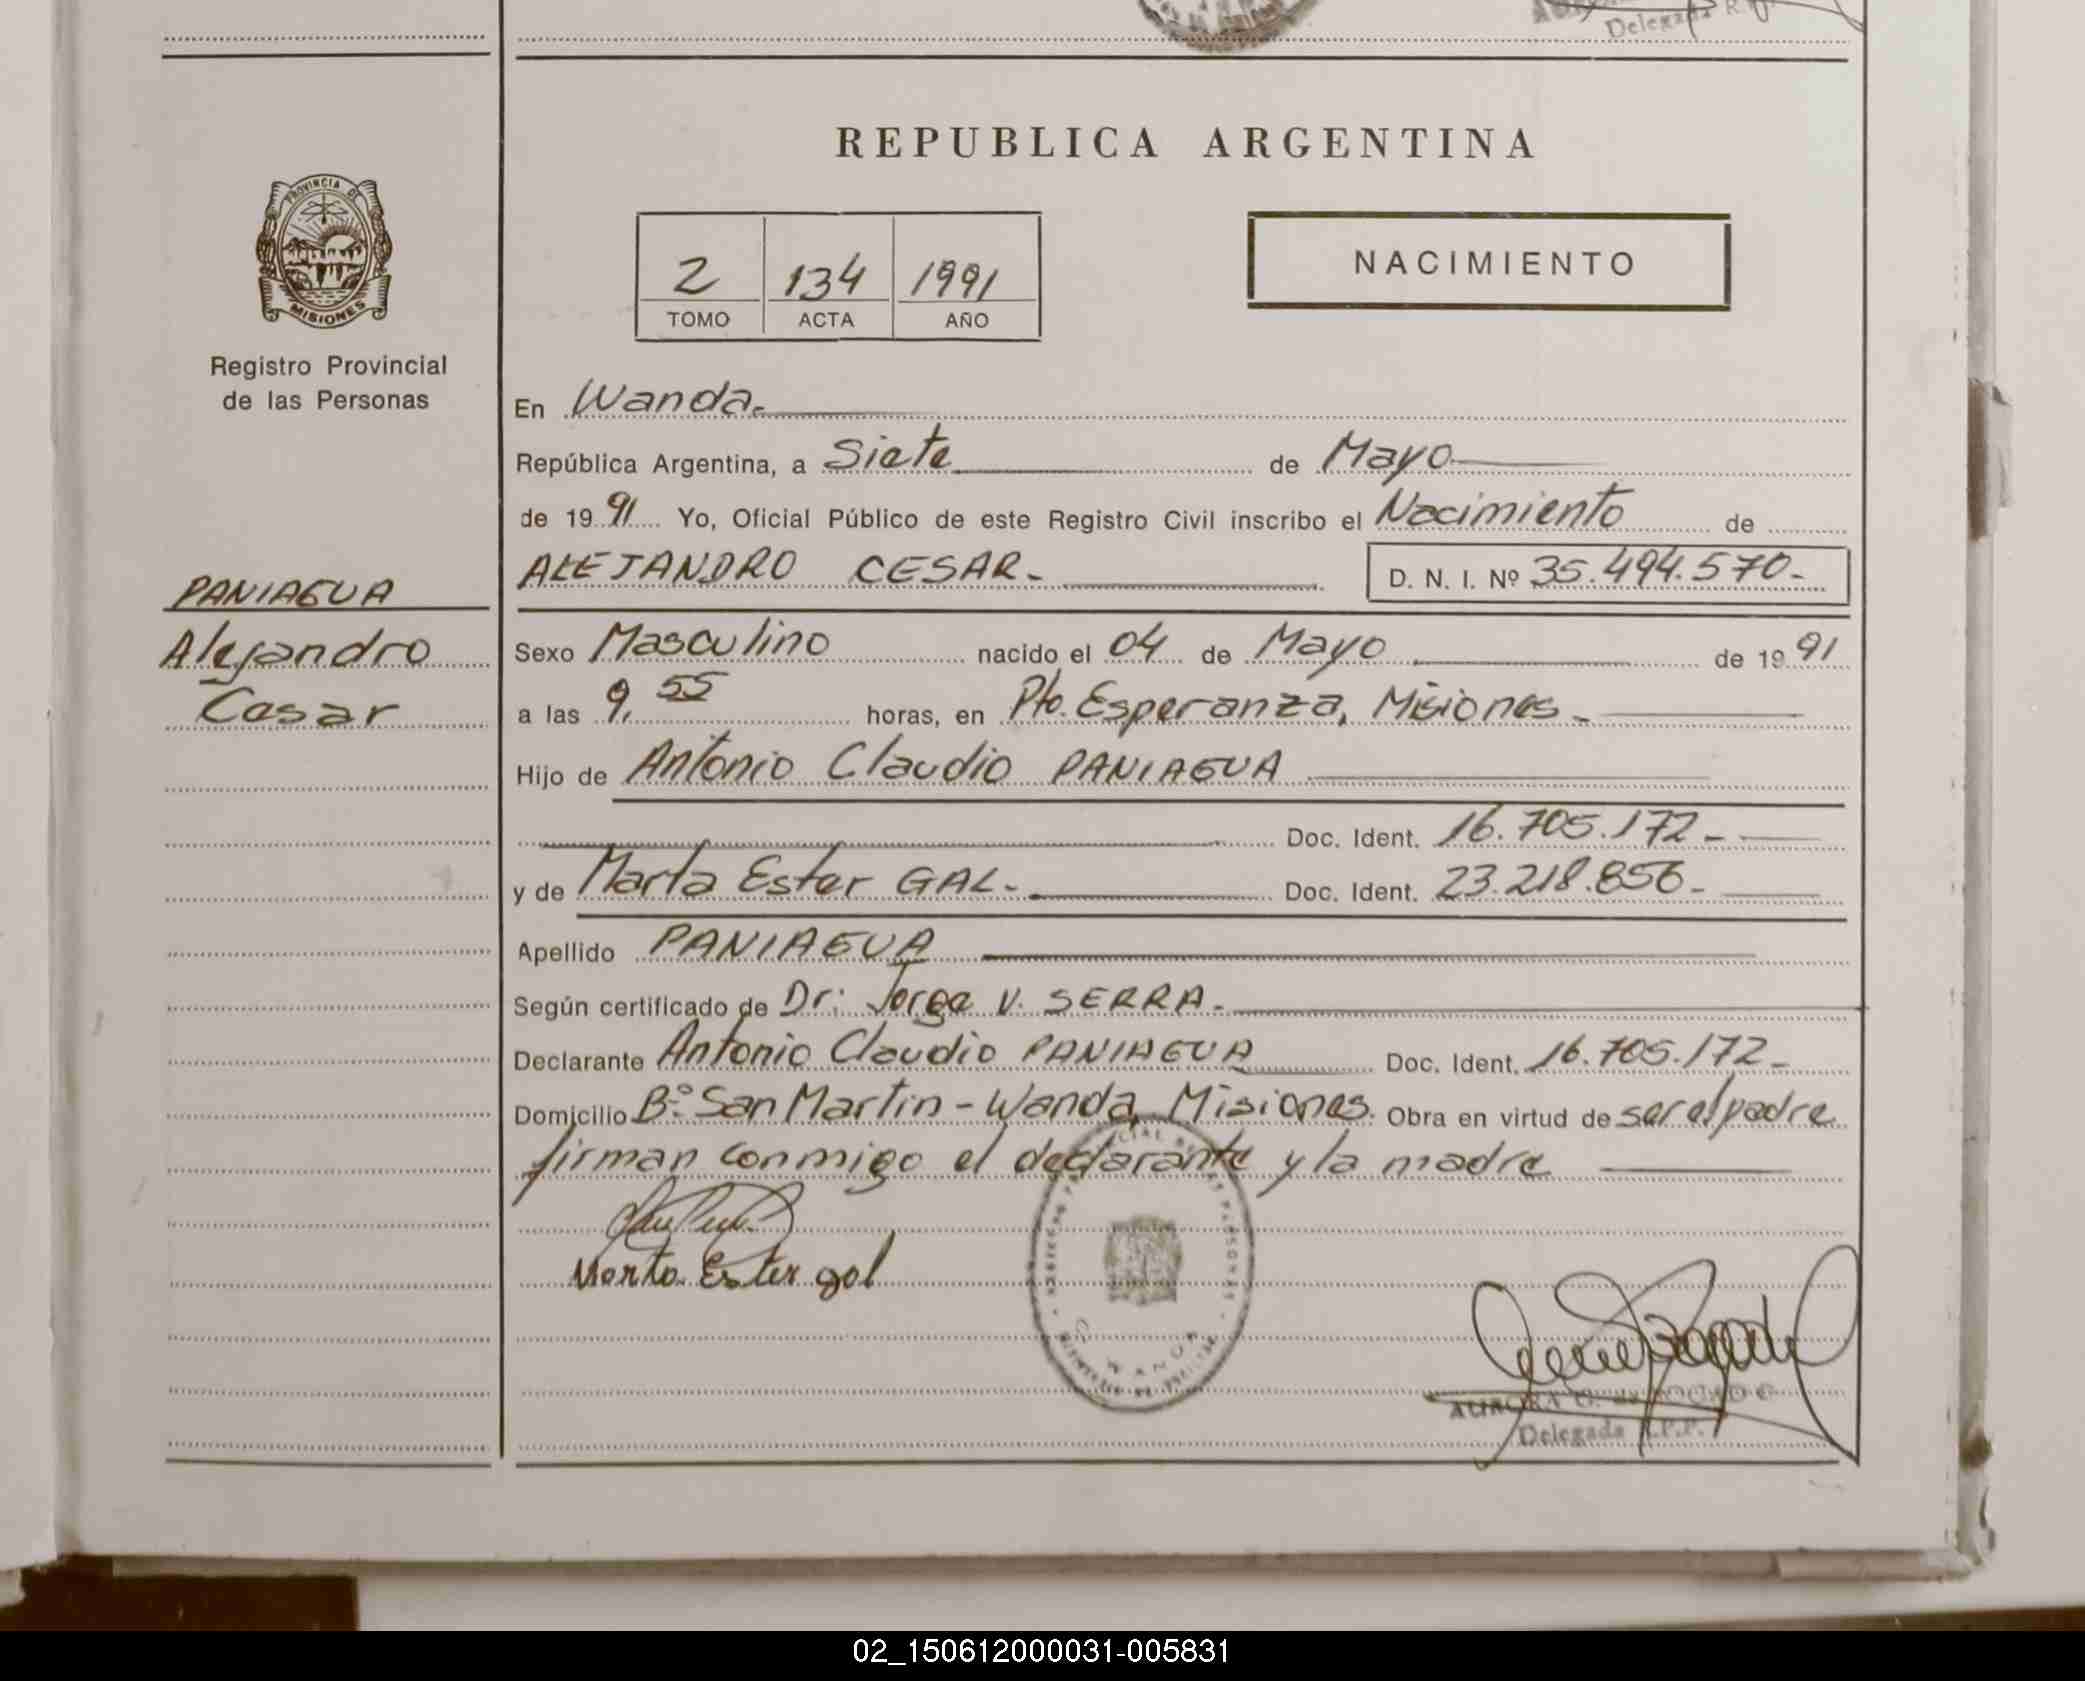 Delegada R.
REPUBLICA ARGENTINA
PROVINCIA DE
MISIONES
2 134 1991
TOMO ACTA AÑO
NACIMIENTO
Registro Provincial
de las Personas
En Wanda.
República Argentina, a Siete de Mayo
de 1991 Yo, Oficial Público de este Registro Civil inscribo el Nacimiento de
ALEJANDRO CESAR.- D. N. I. Nº 35.494.570-
PANIAGUA
Alejandro
Cesar
Sexo Masculino nacido el 04 de Mayo de 1991
a las 9,55 horas, en Pto. Esperanza, Misiones-
Hijo de Antonio Claudio PANIAGUA
Doc. Ident. 16.705.172-
y de Marta Ester GAL.- Doc. Ident. 23.218.856-
Apellido PANIAGUA
Según certificado de Dr: Jorge V. SERRA.-
Declarante Antonio Claudio PANIAGUA Doc. Ident. 16.705.172-
Domicilio Bº San Martin - Wanda, Misiones. Obra en virtud de ser el padre
firman conmigo el declarante y la madre
Marta Ester gal
WANDA
AURORA
Delegada R.P.P.
02_150612000031-005831